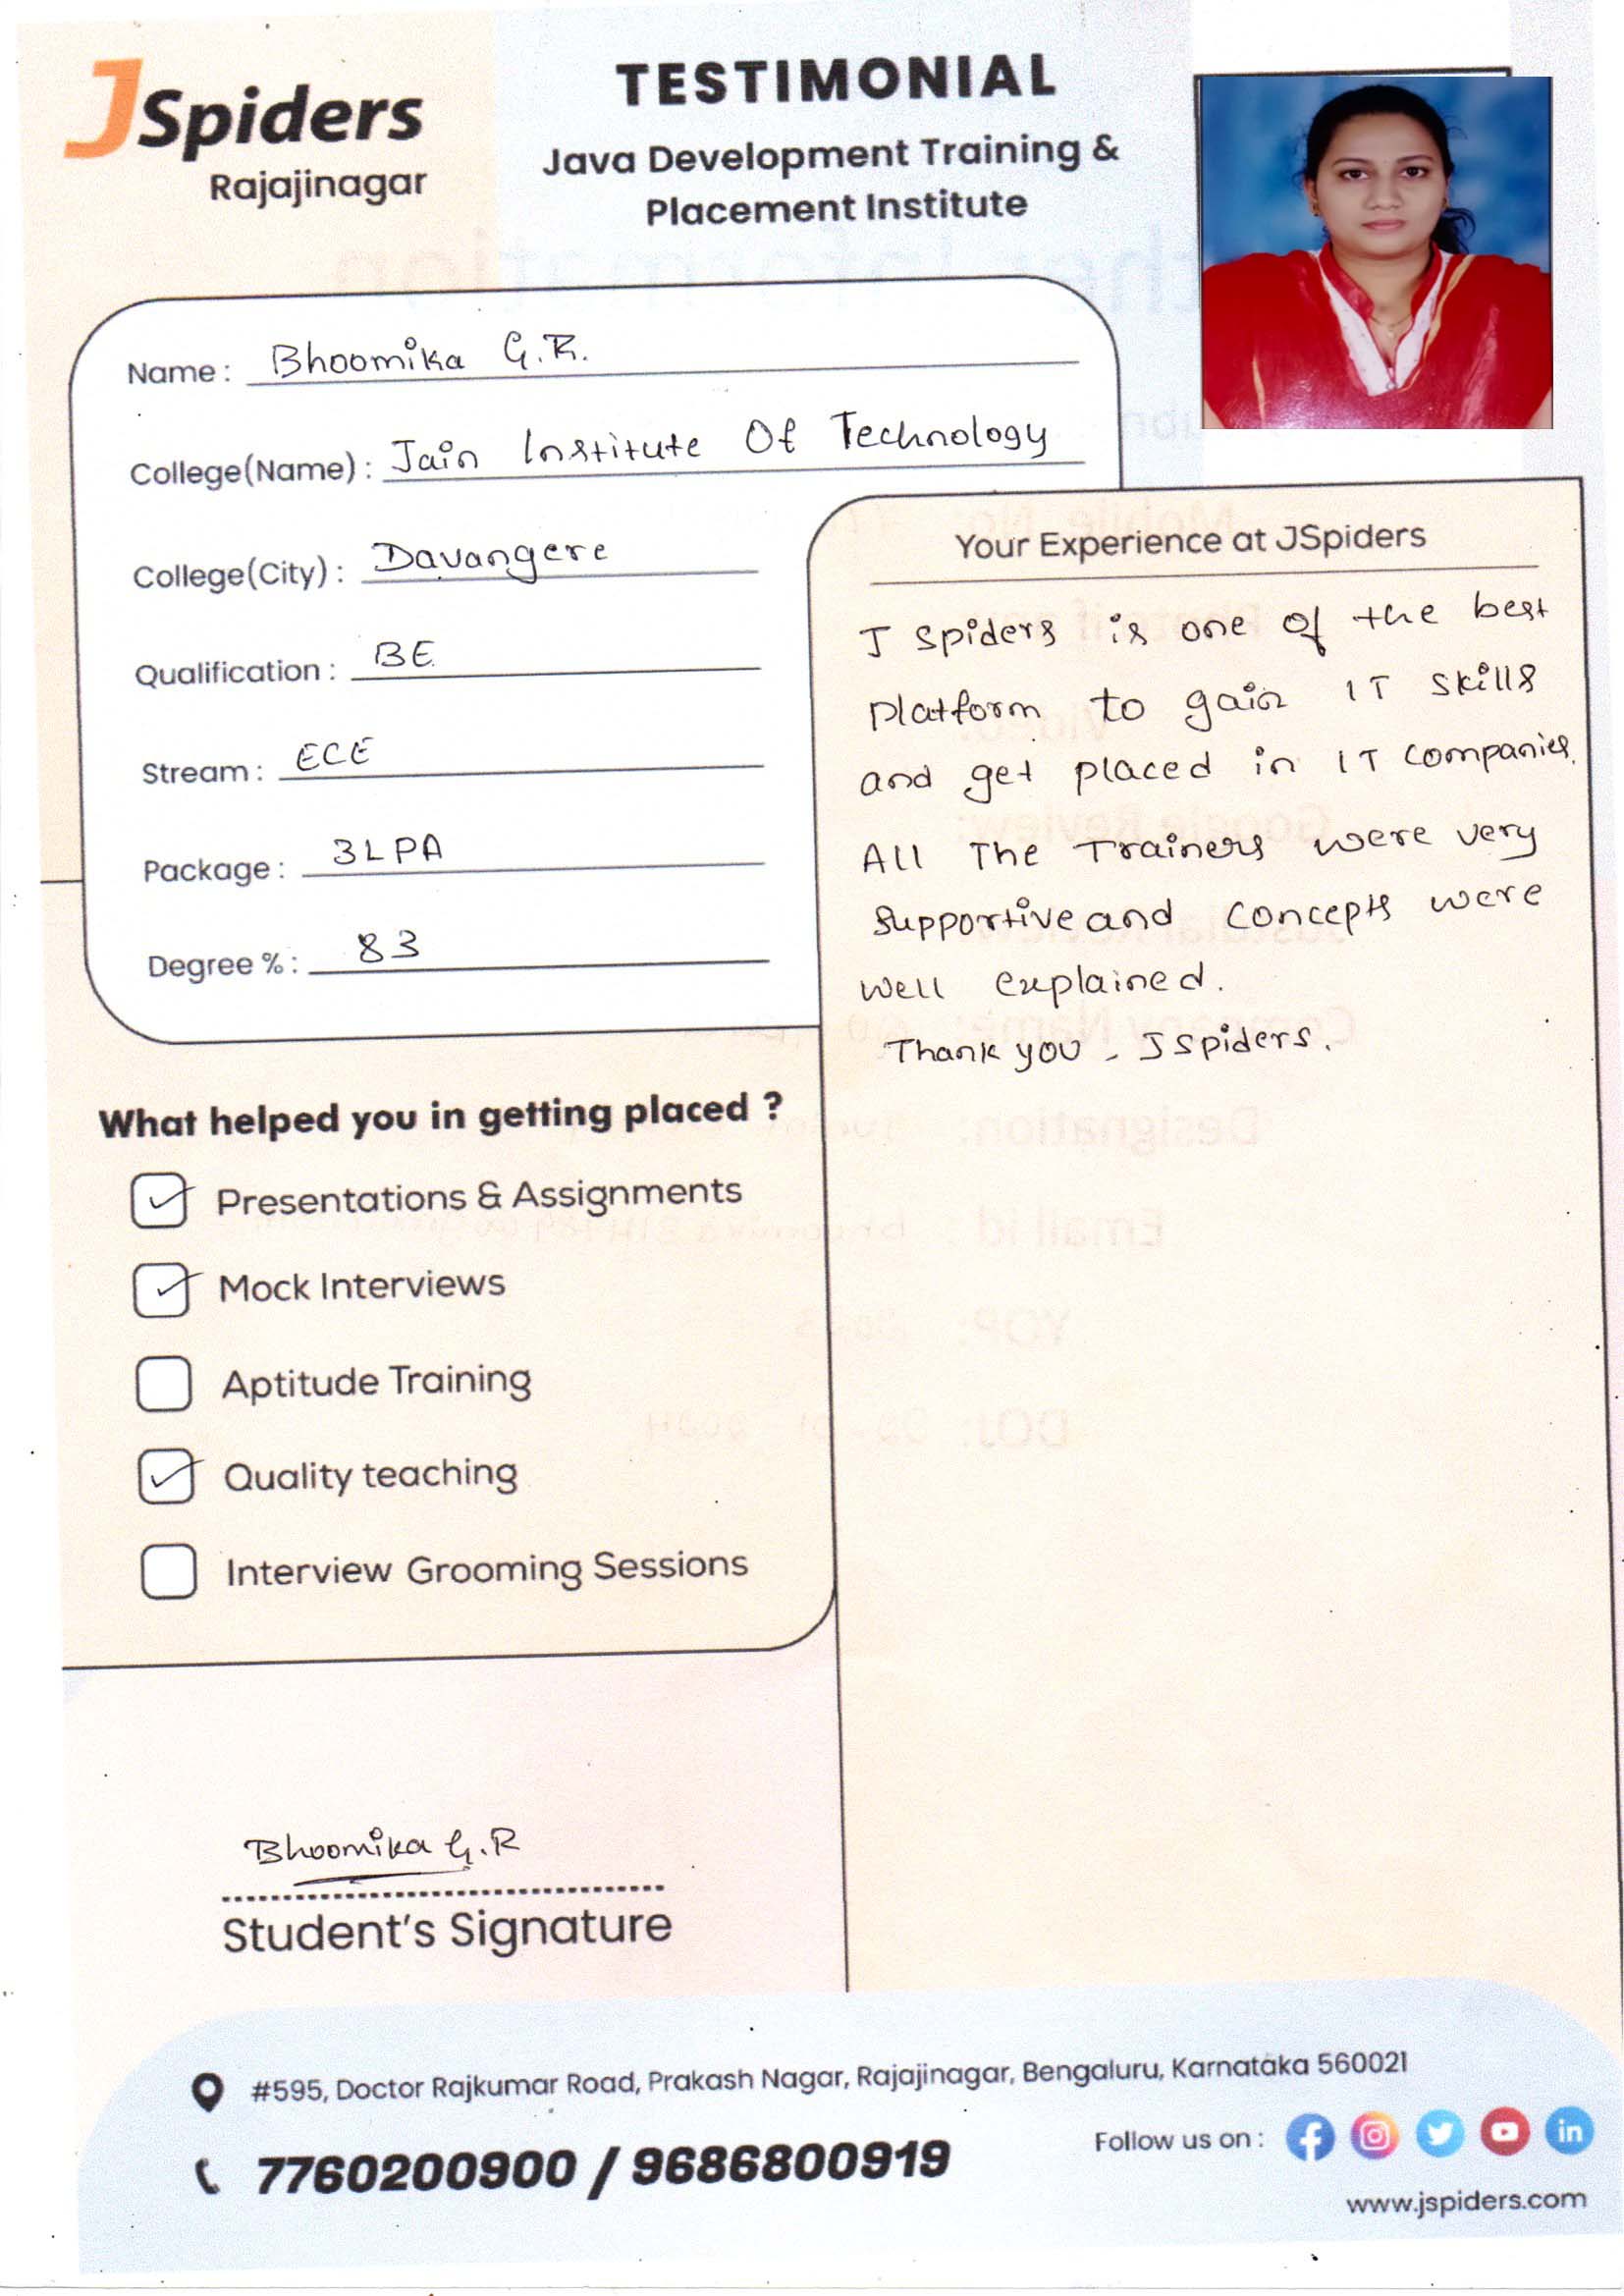 JSpiders
Rajajinagar
TESTIMONIAL
Java Development Training &
Placement Institute
Name : Bhoomika G.R.
College(Name) : Jain Institute Of Technology
College(City) : Davangere
Qualification : BE
Stream : ECE
Package : 3LPA
Degree % : 83
Your Experience at JSpiders
J Spiders is one of the best
platform to gain IT skills
and get placed in IT companies.
All The Trainers were very
Supportive and concepts were
well explained.
Thank you - JSpiders.
What helped you in getting placed ?
Presentations & Assignments
Mock Interviews
Aptitude Training
Quality teaching
Interview Grooming Sessions
Bhoomika G.R
Student's Signature
#595, Doctor Rajkumar Road, Prakash Nagar, Rajajinagar, Bengaluru, Karnataka 560021
7760200900 / 9686800919
Follow us on :
www.jspiders.com